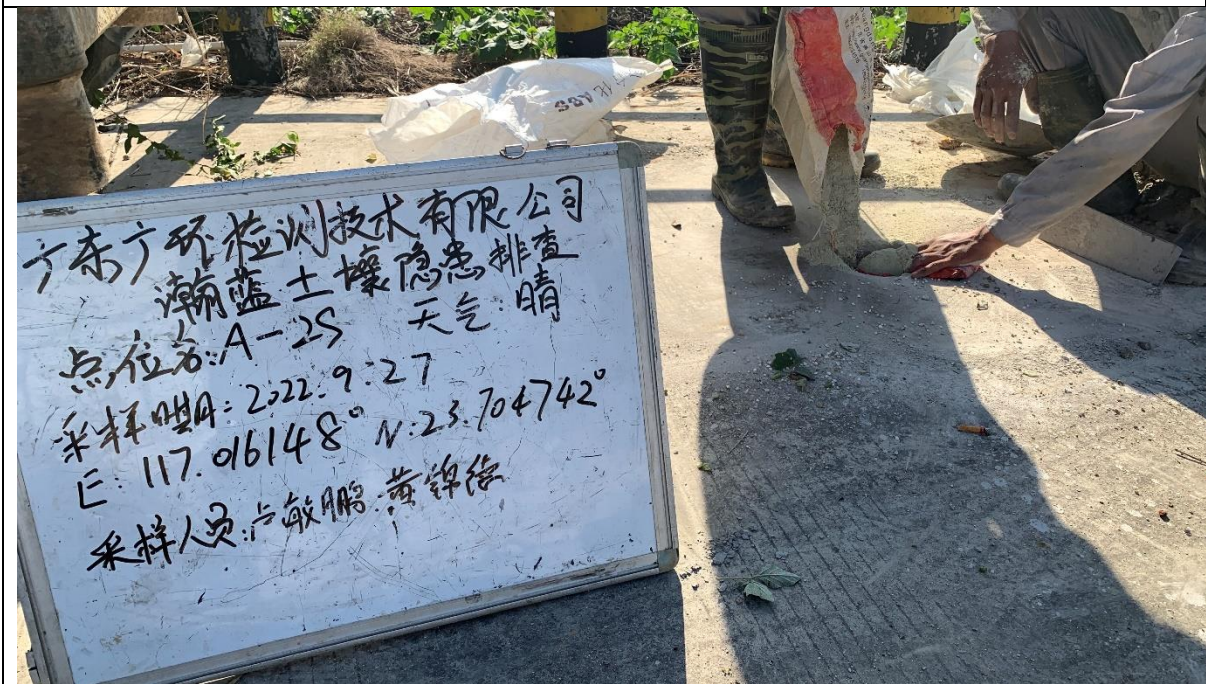 广东广环检测技术有限公司
瀚蓝土壤隐患排查
点位名:A-2S 天气:晴
采样日期:2022.9.27
E:117.016148° N:23.704742°
采样人员:卢敏鹏.黄锦